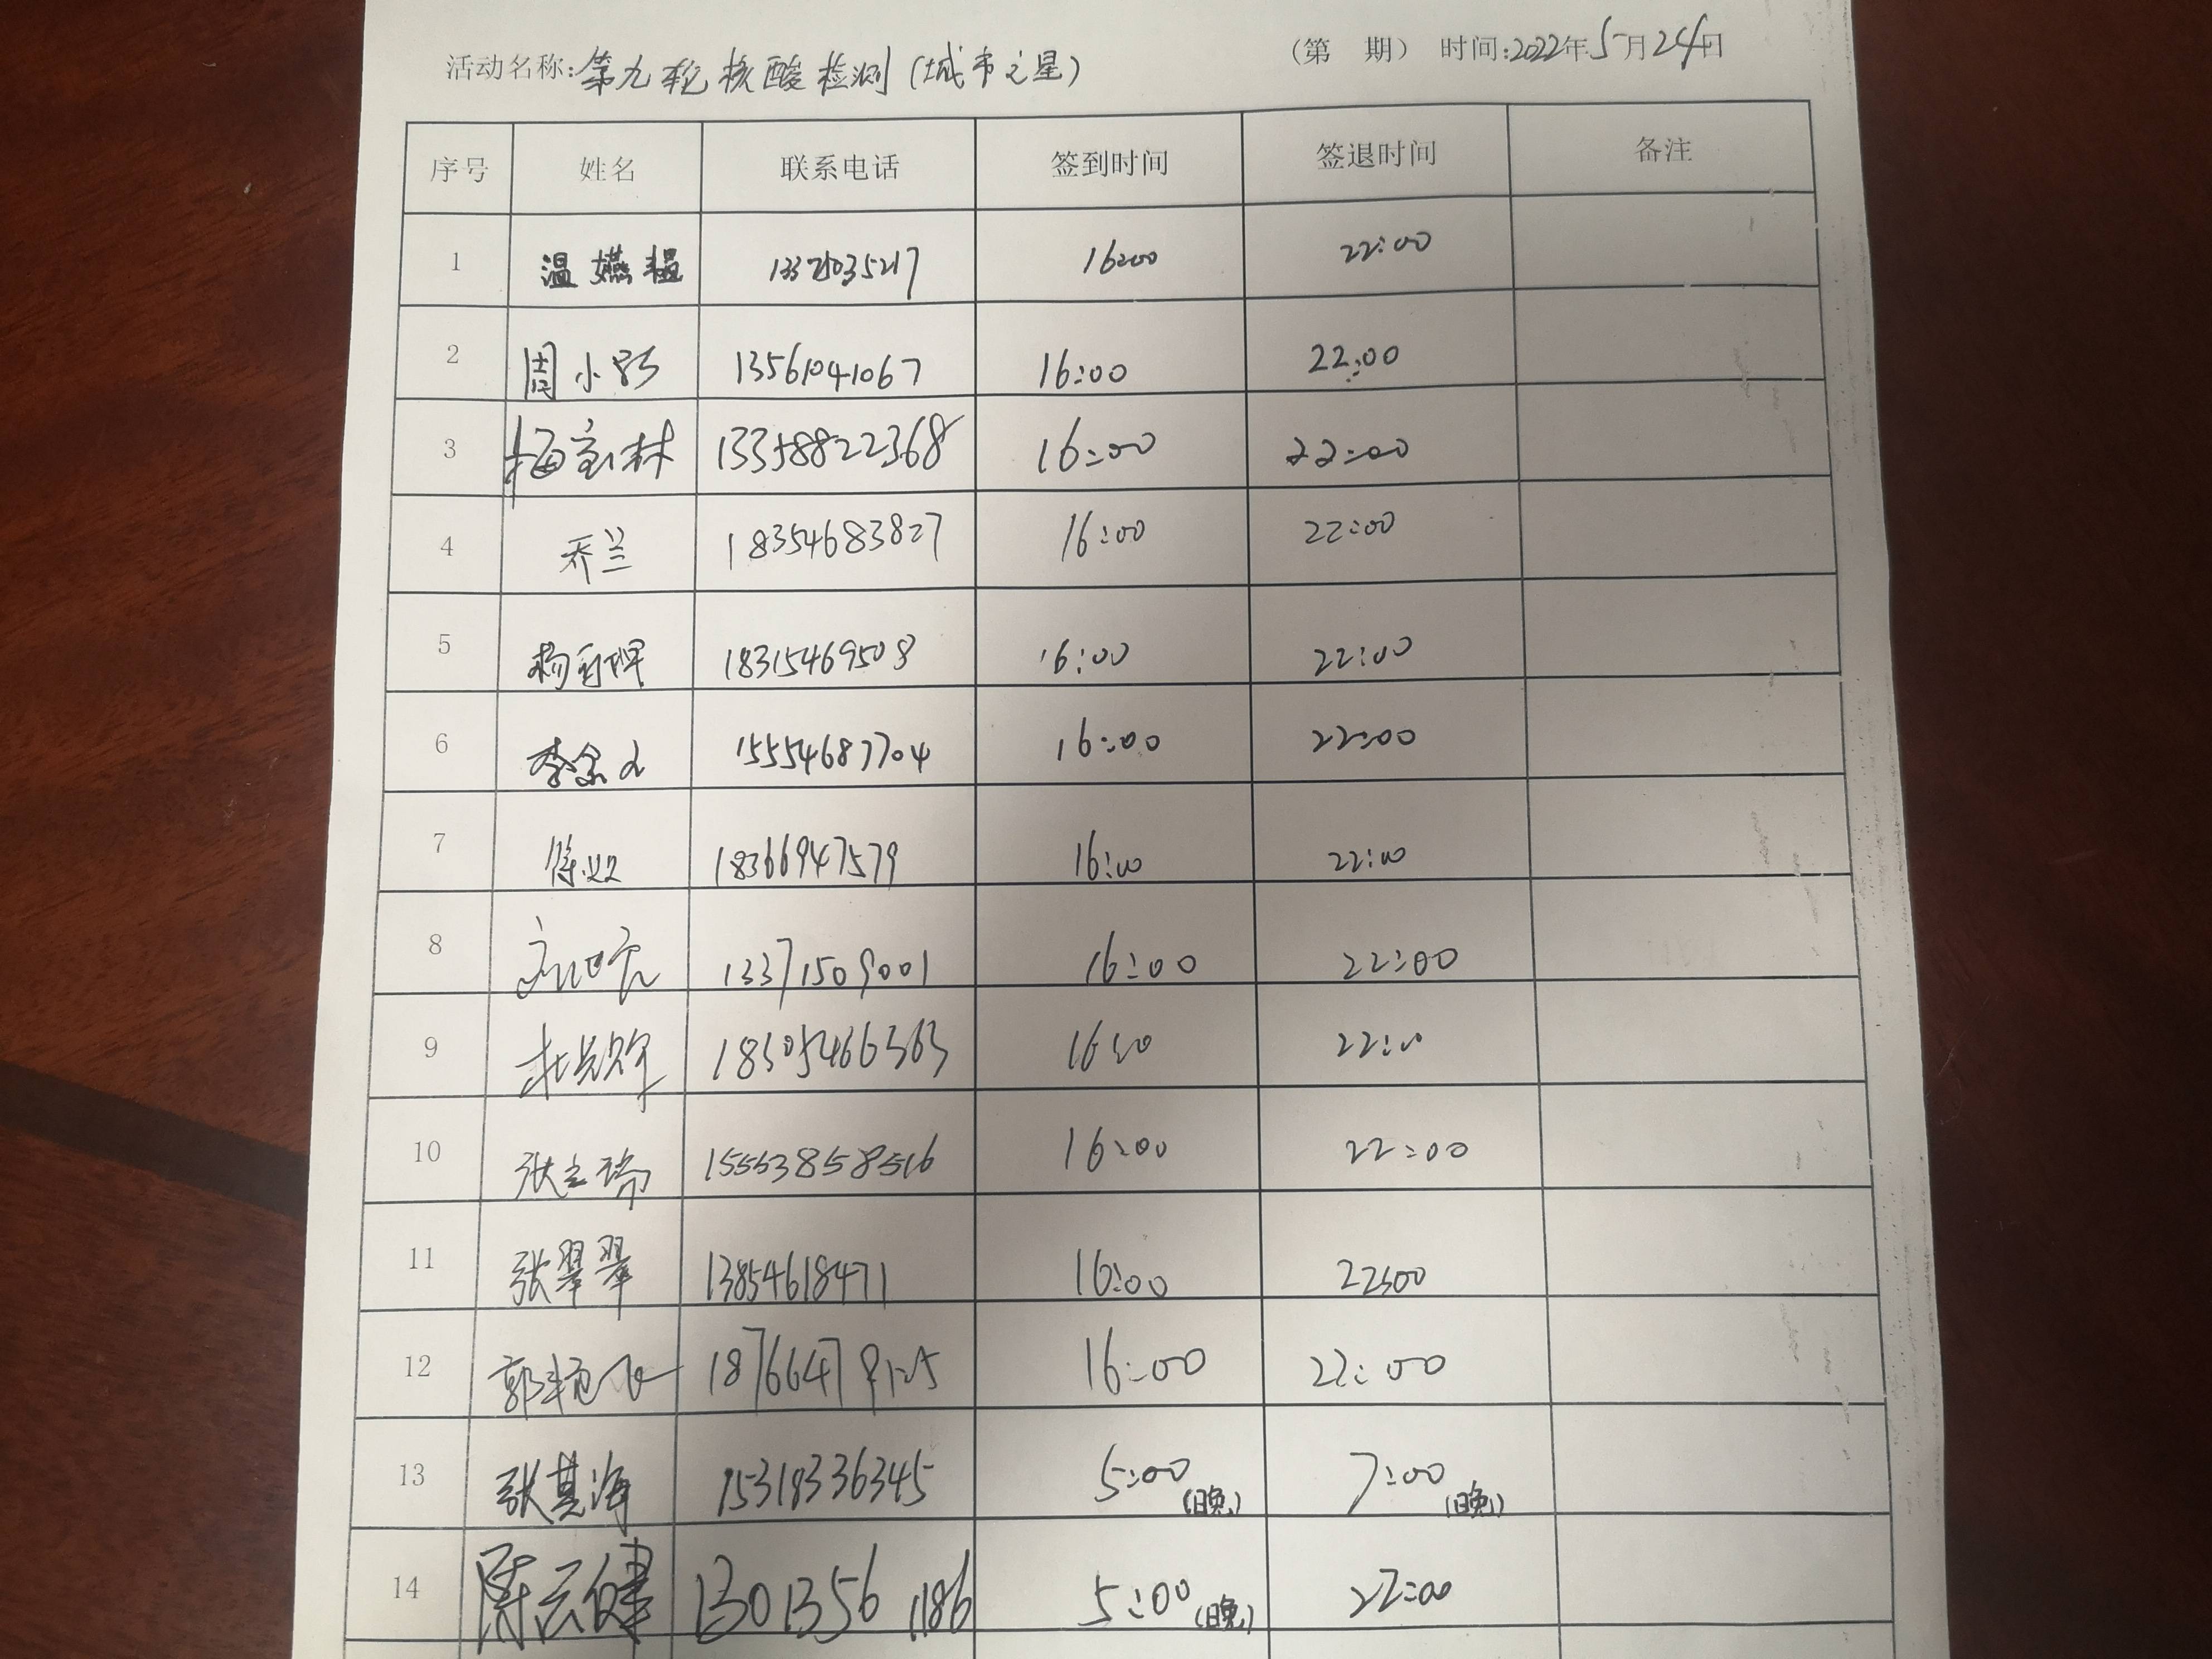 活动名称:第九轮核酸检测(城市之星) (第 期) 时间:2022年5月24日
序号 姓名 联系电话 签到时间 签退时间 备注
1 温嬿韫 16:00 22:00
2 周小 13561041067 16:00 22:00
3 梅宝林 13358822368 16:00 22:00
4 乔兰 18354683827 16:00 22:00
5 杨 18315469508 16:00 22:00
6 李 15554687704 16:00 22:00
7 18366947579 16:00 22:00
8 13371509001 16:00 22:00
9 18305466363 16:00 22:00
10 张立瑞 15553858516 16:00 22:00
11 张翠翠 13854618471 16:00 22:00
12 郭艳飞 16:00 22:00
13 张其海 15318336345 5:00(晚) 7:00(晚)
14 陈云健 13013561186 5:00(晚) 22:00